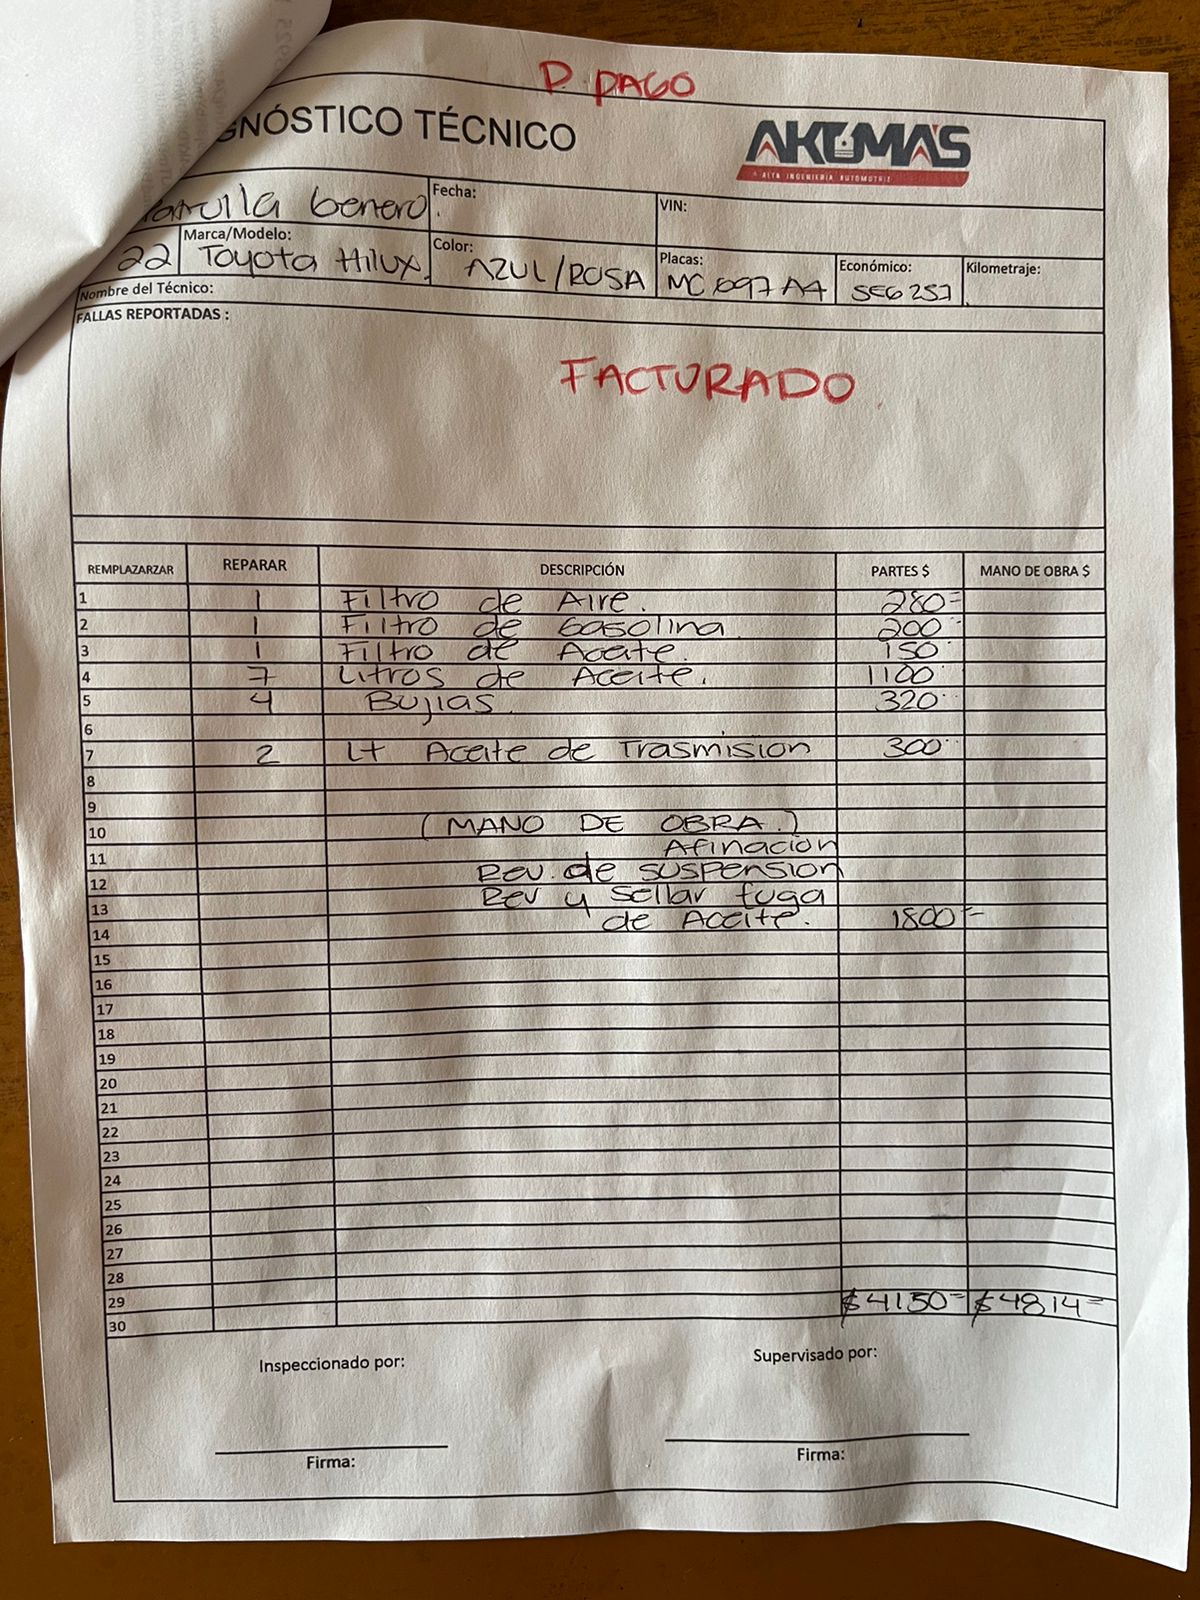 P. PAGO
GNÓSTICO TÉCNICO
AKUMA'S
ALTA INGENIERÍA AUTOMOTRIZ
Genero.
Fecha:
VIN:
22
Marca/Modelo:
Toyota Hilux.
Color:
AZUL/ROSA
Placas:
MC 697 A4
Económico:
SE6257
Kilometraje:
Nombre del Técnico:
FALLAS REPORTADAS :
FACTURADO
REMPLAZARZAR REPARAR DESCRIPCIÓN PARTES $ MANO DE OBRA $
1 1 Filtro de Aire. 280=
2 1 Filtro de Gasolina 200
3 1 Filtro de Aceite. 150
4 7 Litros de Aceite. 1100
5 4 Bujias. 320
6
7 2 Lt Aceite de Trasmision 300
8
9
10 (MANO DE OBRA.)
11 Afinacion
12 Rev. de suspension
13 Rev y sellar fuga
14 de Aceite. 1800=
15
16
17
18
19
20
21
22
23
24
25
26
27
28
29 $4150= $4814=
30
Inspeccionado por: Supervisado por:
Firma: Firma: